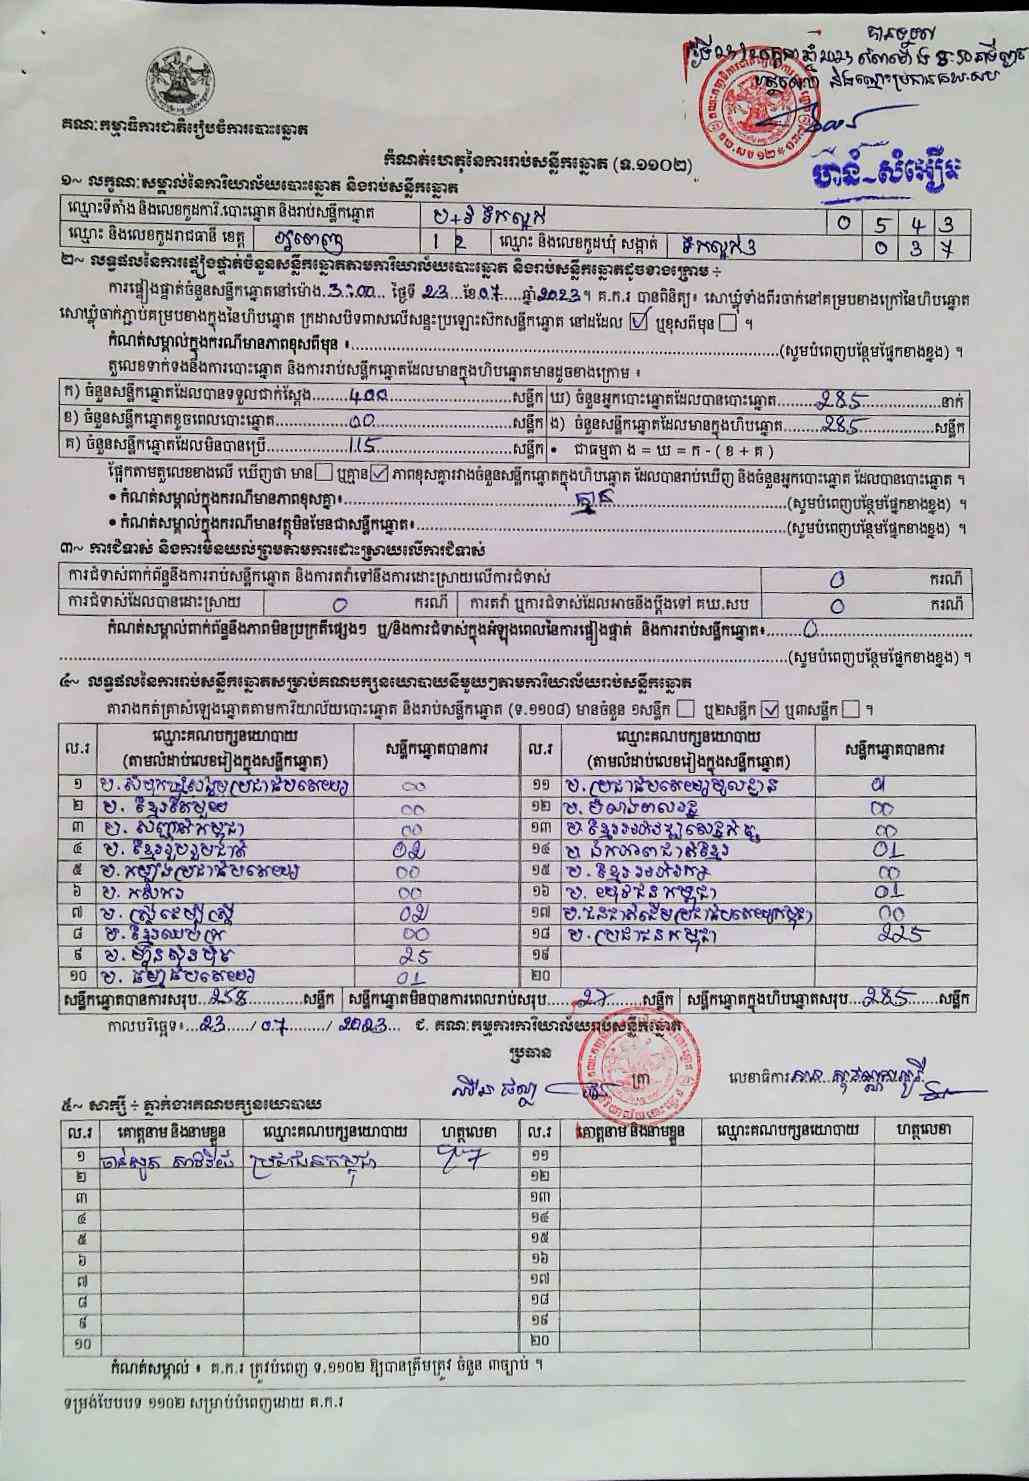 បានទទួល
គណៈកម្មាធិការជាតិរៀបចំការបោះឆ្នោត
កំណត់ហេតុនៃការរាប់សន្លឹកឆ្នោត (ទ.១១០២)
ប៉ាន់ សំអឿន
១~ លក្ខណៈសម្គាល់នៃការិយាល័យបោះឆ្នោត និងរាប់សន្លឹកឆ្នោត
ឈ្មោះទីតាំង និងលេខកូដការិ.បោះឆ្នោត និងរាប់សន្លឹកឆ្នោត ប+វិ ទឹកល្អក់ 0 5 4 3
ឈ្មោះ និងលេខកូដរាជធានី ខេត្ត ភ្នំពេញ 1 2 ឈ្មោះ និងលេខកូដឃុំ សង្កាត់ ទឹកល្អក់៣ 0 3 7
២~ លទ្ធផលនៃការផ្ទៀងផ្ទាត់ចំនួនសន្លឹកឆ្នោតតាមការិយាល័យបោះឆ្នោត និងរាប់សន្លឹកឆ្នោតដូចខាងក្រោម ÷
ការផ្ទៀងផ្ទាត់ចំនួនសន្លឹកឆ្នោតនៅម៉ោង 3:00 ថ្ងៃទី 23 ខែ 07 ឆ្នាំ 2023។ គ.ក.រ បានពិនិត្យ៖ សោឃ្លុំទាំងពីរចាក់នៅគម្របខាងក្រៅនៃហិបឆ្នោត
សោឃ្លុំចាក់ភ្ជាប់គម្របខាងក្នុងនៃហិបឆ្នោត ក្រដាសបិទពាសលើសន្ទះប្រឡោះស៊កសន្លឹកឆ្នោត នៅដដែល ☑ ឬខុសពីមុន ☐ ។
កំណត់សម្គាល់ក្នុងករណីមានភាពខុសពីមុន ៖ (សូមបំពេញបន្ថែមផ្នែកខាងខ្នង) ។
តួលេខទាក់ទងនឹងការបោះឆ្នោត និងការរាប់សន្លឹកឆ្នោតដែលមានក្នុងហិបឆ្នោតមានដូចខាងក្រោម ៖
ក) ចំនួនសន្លឹកឆ្នោតដែលបានទទួលជាក់ស្តែង 400 សន្លឹក ឃ) ចំនួនអ្នកបោះឆ្នោតដែលបានបោះឆ្នោត 285 នាក់
ខ) ចំនួនសន្លឹកឆ្នោតខូចពេលបោះឆ្នោត 00 សន្លឹក ង) ចំនួនសន្លឹកឆ្នោតដែលមានក្នុងហិបឆ្នោត 285 សន្លឹក
គ) ចំនួនសន្លឹកឆ្នោតដែលមិនបានប្រើ 115 សន្លឹក • ជាធម្មតា ង = ឃ = ក - ( ខ + គ )
ផ្អែកតាមតួលេខខាងលើ ឃើញថា មាន ☐ ឬគ្មាន ☑ ភាពខុសគ្នារវាងចំនួនសន្លឹកឆ្នោតក្នុងហិបឆ្នោត ដែលបានរាប់ឃើញ និងចំនួនអ្នកបោះឆ្នោត ដែលបានបោះឆ្នោត ។
• កំណត់សម្គាល់ក្នុងករណីមានភាពខុសគ្នា៖ គ្មាន (សូមបំពេញបន្ថែមផ្នែកខាងខ្នង) ។
• កំណត់សម្គាល់ក្នុងករណីមានវត្ថុមិនមែនជាសន្លឹកឆ្នោត៖ (សូមបំពេញបន្ថែមផ្នែកខាងខ្នង) ។
៣~ ការជំទាស់ និងការមិនយល់ព្រមតាមការដោះស្រាយលើការជំទាស់
ការជំទាស់ពាក់ព័ន្ធនឹងការរាប់សន្លឹកឆ្នោត និងការតវ៉ាទៅនឹងការដោះស្រាយលើការជំទាស់ 0 ករណី
ការជំទាស់ដែលបានដោះស្រាយ 0 ករណី ការតវ៉ា ឬការជំទាស់ដែលអាចនឹងប្តឹងទៅ គឃ.សប 0 ករណី
កំណត់សម្គាល់ពាក់ព័ន្ធនឹងភាពមិនប្រក្រតីផ្សេងៗ ឬ/និងការជំទាស់ក្នុងអំឡុងពេលនៃការផ្ទៀងផ្ទាត់ និងការរាប់សន្លឹកឆ្នោត៖ 0
(សូមបំពេញបន្ថែមផ្នែកខាងខ្នង) ។
៤~ លទ្ធផលនៃការរាប់សន្លឹកឆ្នោតសម្រាប់គណបក្សនយោបាយនីមួយៗតាមការិយាល័យរាប់សន្លឹកឆ្នោត
តារាងកត់ត្រាសំឡេងឆ្នោតតាមការិយាល័យបោះឆ្នោត និងរាប់សន្លឹកឆ្នោត (ទ.១១០៨) មានចំនួន ១សន្លឹក ☐ ឬ២សន្លឹក ☑ ឬ៣សន្លឹក ☐ ។
ល.រ ឈ្មោះគណបក្សនយោបាយ (តាមលំដាប់លេខរៀងក្នុងសន្លឹកឆ្នោត) សន្លឹកឆ្នោតបានការ ល.រ ឈ្មោះគណបក្សនយោបាយ (តាមលំដាប់លេខរៀងក្នុងសន្លឹកឆ្នោត) សន្លឹកឆ្នោតបានការ
១ ប.សំបុកឃ្មុំសង្គមប្រជាធិបតេយ្យ 00 ១១ ប.ប្រជាធិបតេយ្យមូលដ្ឋាន 01
២ ប.ខ្មែរតែមួយ 00 ១២ ប.បំណាងពលរដ្ឋ 00
៣ ប.សញ្ជាតិកម្ពុជា 00 ១៣ ប.ខ្មែរអភិវឌ្ឍសេដ្ឋកិច្ច 00
៤ ប.ខ្មែររួបរួមជាតិ 02 ១៤ ប.ឯកភាពជាតិខ្មែរ 01
៥ ប.កម្លាំងប្រជាធិបតេយ្យ 00 ១៥ ប.ខ្មែរអភិរក្ស 00
៦ ប.កសិករ 00 ១៦ ប.យុវជនកម្ពុជា 01
៧ ប.ស្ត្រីដើម្បីស្ត្រី 02 ១៧ ប.ជនជាតិដើមប្រជាធិបតេយ្យកម្ពុជា 00
៨ ប.ខ្មែរឈប់ក្រ 00 ១៨ ប.ប្រជាជនកម្ពុជា 225
៩ ប.ហ៊្វុនស៊ិនប៉ិច 25 ១៩
១០ ប.ធម្មាធិបតេយ្យ 01 ២០
សន្លឹកឆ្នោតបានការសរុប 258 សន្លឹក សន្លឹកឆ្នោតមិនបានការពេលរាប់សរុប 27 សន្លឹក សន្លឹកឆ្នោតក្នុងហិបឆ្នោតសរុប 285 សន្លឹក
កាលបរិច្ឆេទ៖ 23 / 07 / 2023 ជ. គណៈកម្មការការិយាល័យរាប់សន្លឹកឆ្នោត
ប្រធាន
ត្រា
លេខាធិការ
៥~ សាក្សី ÷ ភ្នាក់ងារគណបក្សនយោបាយ
ល.រ គោត្តនាម និងនាមខ្លួន ឈ្មោះគណបក្សនយោបាយ ហត្ថលេខា ល.រ គោត្តនាម និងនាមខ្លួន ឈ្មោះគណបក្សនយោបាយ ហត្ថលេខា
១ ប្រជាជនកម្ពុជា ១១
២ ១២
៣ ១៣
៤ ១៤
៥ ១៥
៦ ១៦
៧ ១៧
៨ ១៨
៩ ១៩
១០ ២០
កំណត់សម្គាល់ ៖ គ.ក.រ ត្រូវបំពេញ ទ.១១០២ ឱ្យបានត្រឹមត្រូវ ចំនួន ៣ច្បាប់ ។
ទម្រង់បែបបទ ១១០២ សម្រាប់បំពេញដោយ គ.ក.រ